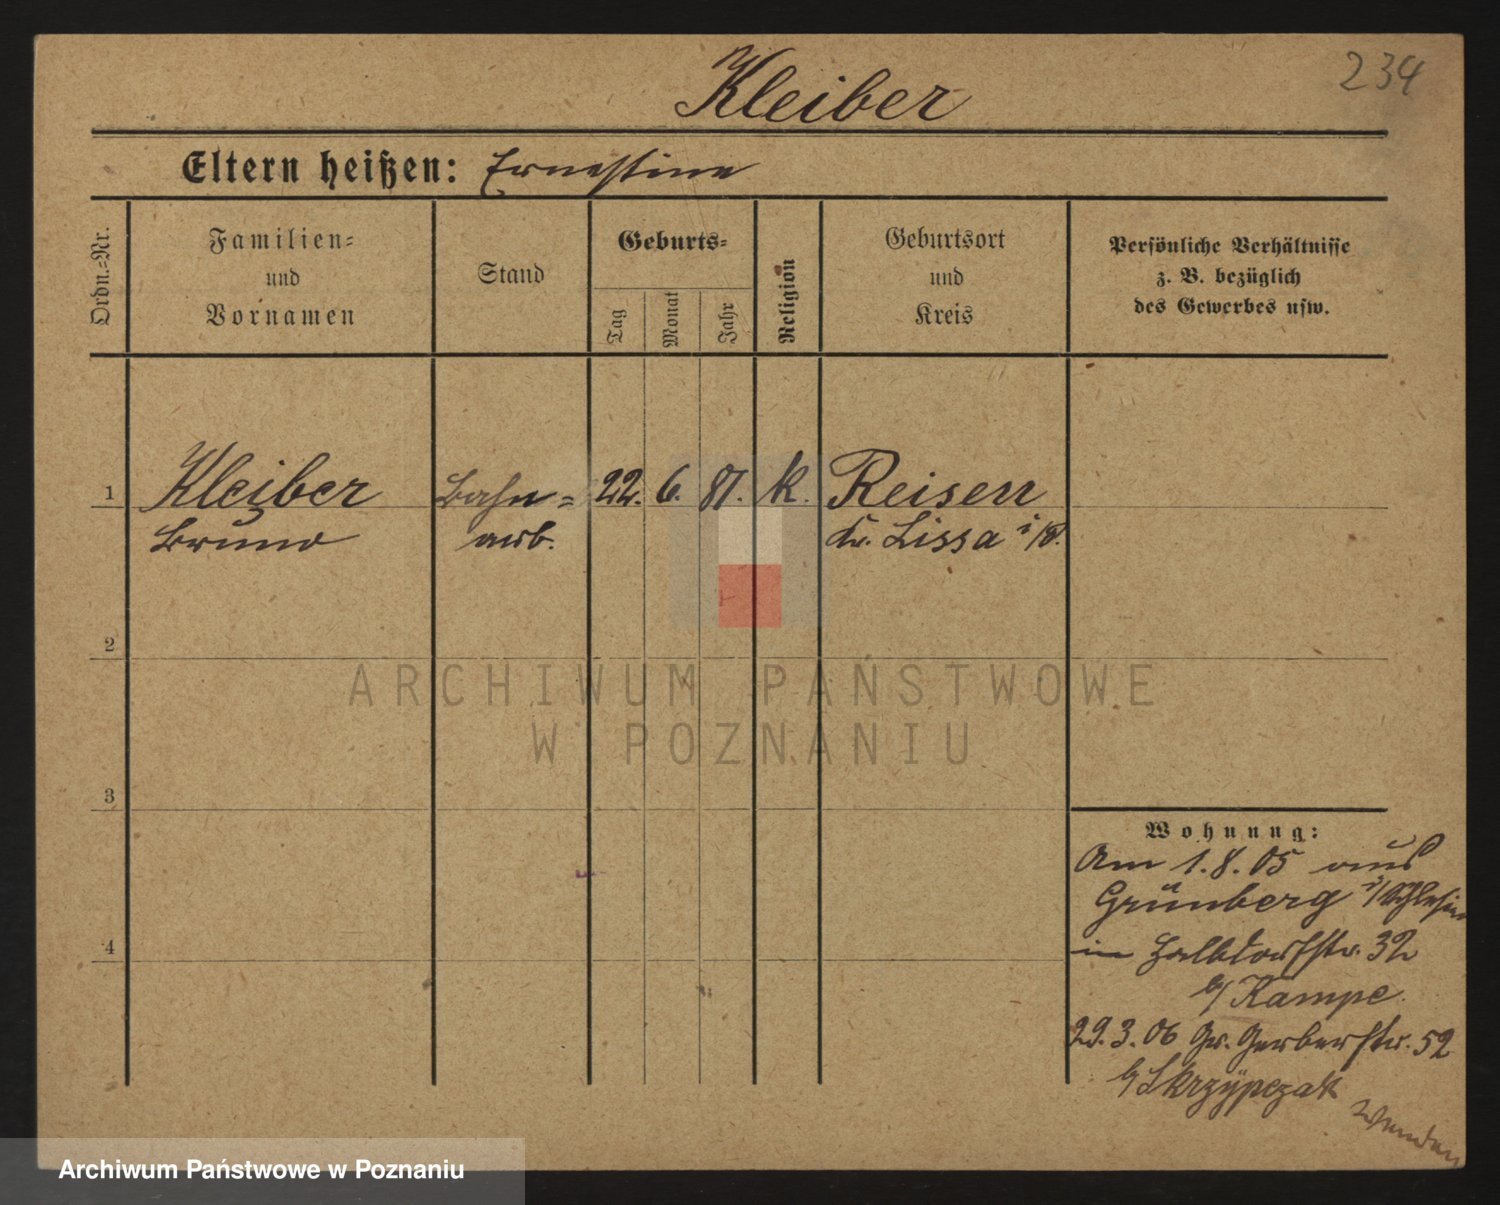 234
Kleiber
Eltern heißen: Ernestine
Ordn.-Nr.
Familien-
und
Vornamen
Stand
Geburts-
Tag
Monat
Jahr
Religion
Geburtsort
und
Kreis
Persönliche Verhältnisse
z. B. bezüglich
des Gewerbes usw.
1 Kleiber Bahn- 22. 6. 81. k. Reisen
Bruno arb. Kr. Lissa i/P.
2
ARCHIWUM PAŃSTWOWE
W POZNANIU
3
Wohnung:
Am 1.8.05 aus
Grünberg i/Schlesien
4
in Halbdorfstr. 32
b/ Kampe.
29.3.06 Gr. Gerberstr. 52
b/ Skrzÿpczak
Wenden
Archiwum Państwowe w Poznaniu